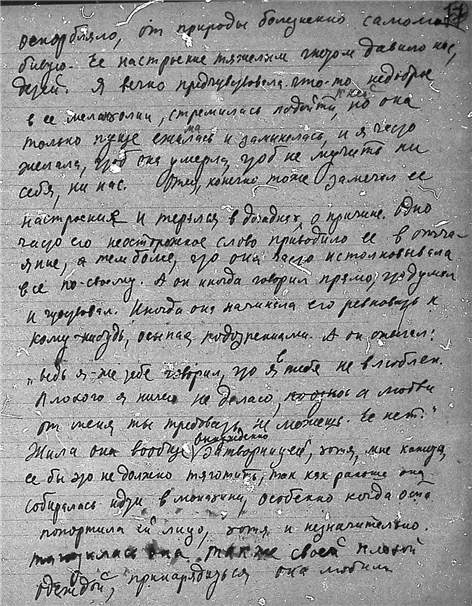 17
оскорбляло, от природы болезненно самолю-
бивую. Ее настроение тяжелым гнетом давило нас,
детей. Я вечно предчувствовала что-то недоброе
в ее меланхолии, стремилась подойти к ней, но она
только пуще сжималась и замыкалась, и я часто
желала, чтоб она умерла, чтоб не мучить ни
себя, ни нас. Отец, конечно тоже замечал ее
настроения и терялся в догадках, о причине. Одно
часто его неосторожное слово приводило ее в отчая-
яние, а тем более, что она часто истолковывала
все по-своему. А он иногда говорил прямо, что думал
и чувствовал. Иногда она начинала его ревновать к
кому-нибудь, осыпая подозрениями. А он отвечал:
„Ведь я же тебе говорил, что я в тебя не влюблен.
Плохого я ничего не делаю, а любви
от меня ты требовать не можешь. Ее нет."
Жила она вообще затворницей, хотя, мне кажется,
ее бы это не должно тяготить, так как раньше она
собиралась идти в монахини, особенно когда оспа
попортила ей лицо, хотя и незначительно.
тяготилась она также своей плохой
одеждой, принарядиться она любила